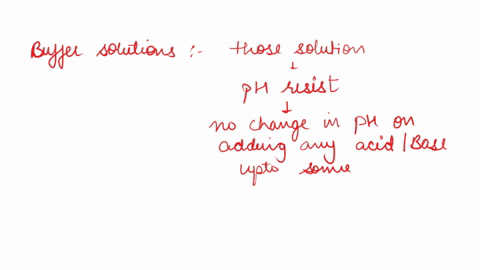 Buffer solutions :- those solution
pH resist
no change in pH on
adding any acid/Base
upto some